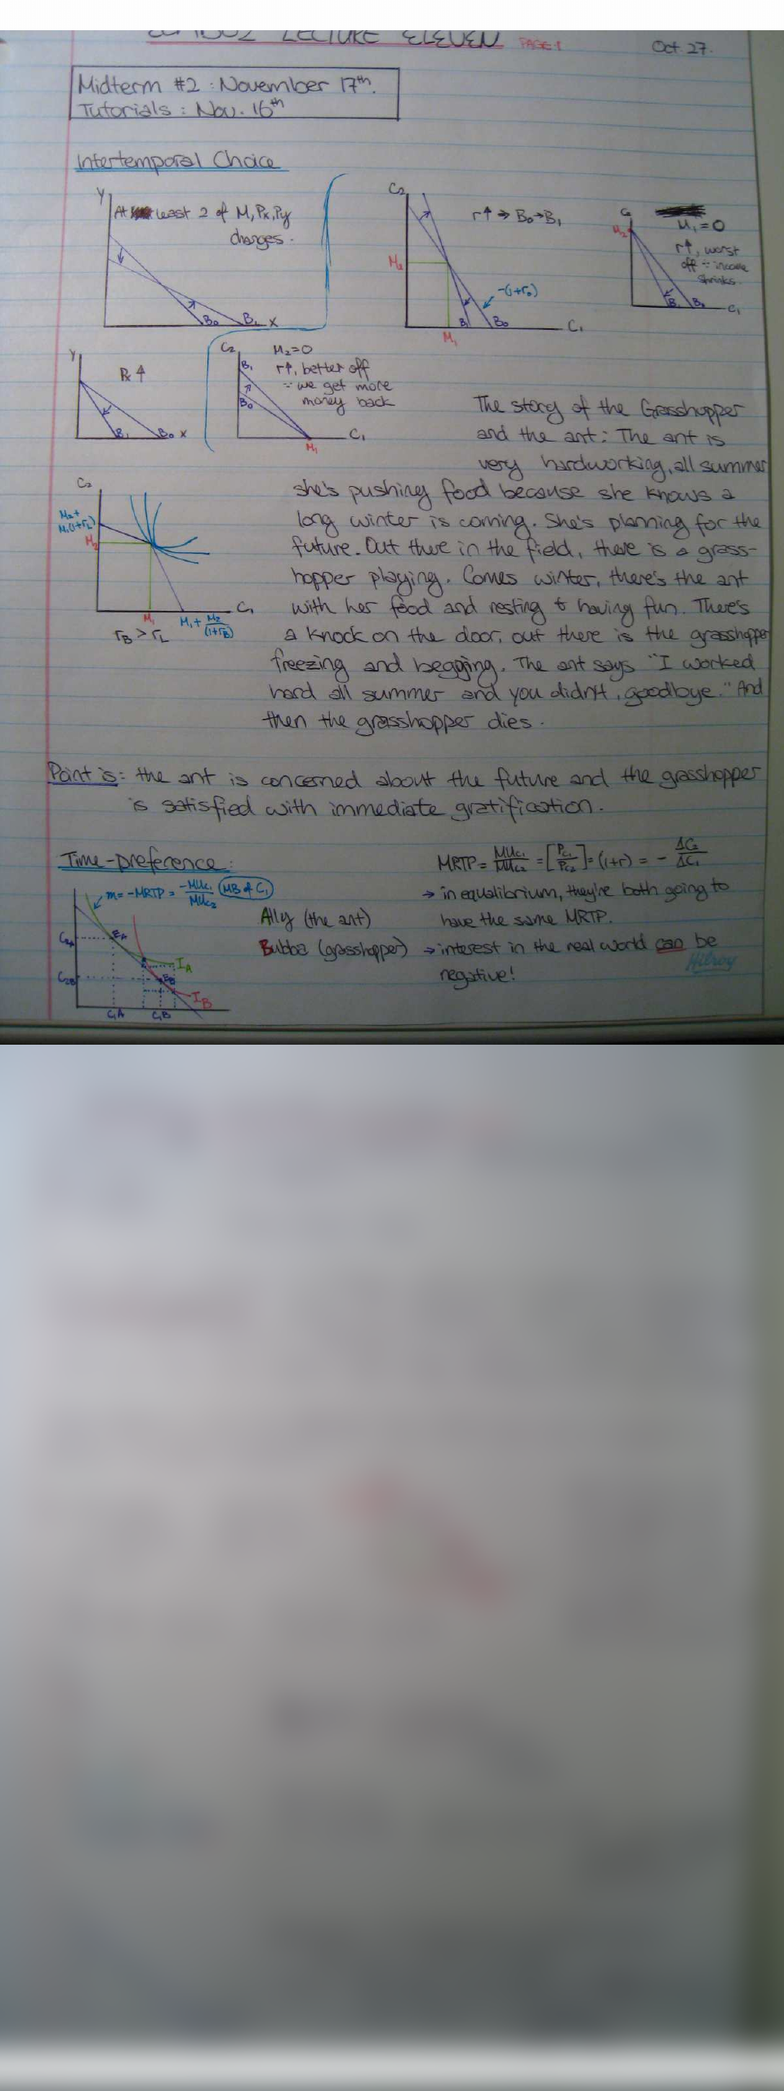 LECTURE ELEVEN PAGE 1 Oct. 27.
Midterm #2 : November 17th.
Tutorials : Nov. 16th
Intertemporal Choice
Y
At least 2 of M, Px, Py
changes.
B₀ B₁ X
C₂
r↑ → B₀→B₁
M₂
-(1+r₀)
B₁ B₀ C₁
M₁
M₂
M₁=0
r↑, worst
off ∵ income
shrinks.
B₁ B₀ C₁
Y
Px ↑
B₁ B₀ X
C₂
M₂=0
B₁
r↑, better off
∵ we get more
money back
B₀
C₁
M₁
The story of the Grasshopper
and the ant: The ant is
very hardworking, all summer
she's pushing food because she knows a
long winter is coming. She's planning for the
future. Out there in the field, there is a grass-
hopper playing. Comes winter, there's the ant
with her food and resting & having fun. There's
a knock on the door, out there is the grasshopper
freezing and begging. The ant says "I worked
hard all summer and you didn't, goodbye." And
then the grasshopper dies.
C₂
M₂+
M₁(1+rL)
M₂
C₁
M₁
M₁ + M₂/(1+rB)
rB > rL
Point is: the ant is concerned about the future and the grasshopper
is satisfied with immediate gratification.
Time-preference:
m = -MRTP = -MUc₁/MUc₂ (MB of C₁)
C₂A
EA
C₂B
EB
IA
IB
C₁A C₁B
Ally (the ant)
Bubba (grasshopper)
MRTP = MUc₁/MUc₂ = [Pc₁/Pc₂] = (1+r) = - ΔC₂/ΔC₁
→ in equalibrium, they're both going to
have the same MRTP.
→ interest in the real world can be
negative!
Hilroy